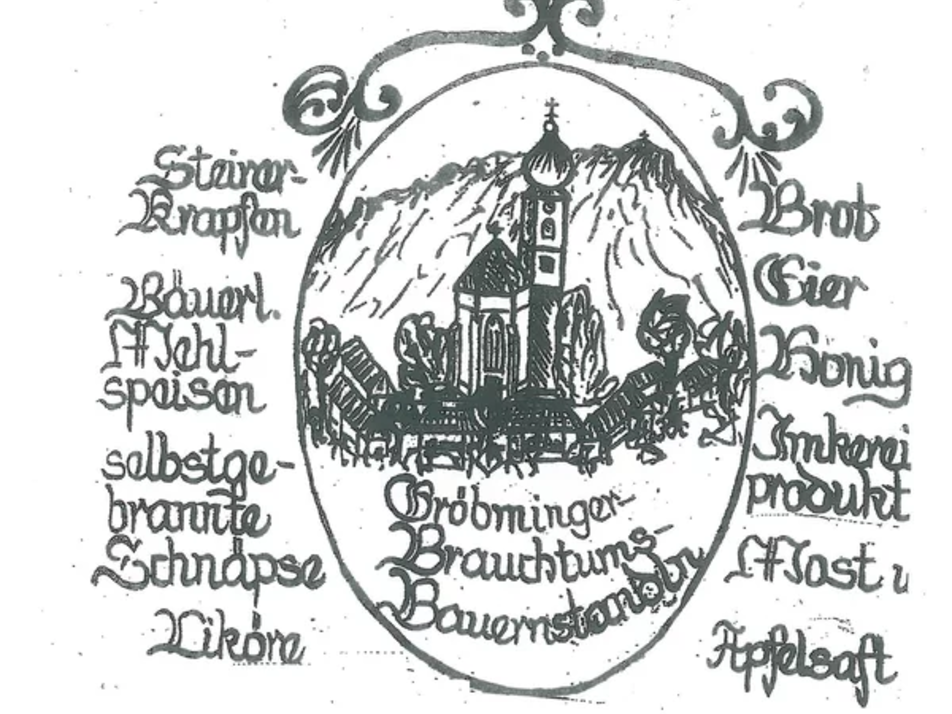 Steirer-
Krapfen
Bäuerl.
Mehl-
speisen
selbstge-
brannte
Schnäpse
Liköre
Gröbminger-
Brauchtums-
Bauernstandln
Brot
Eier
Honig
Imkerei
produkt
Most u
Apfelsaft